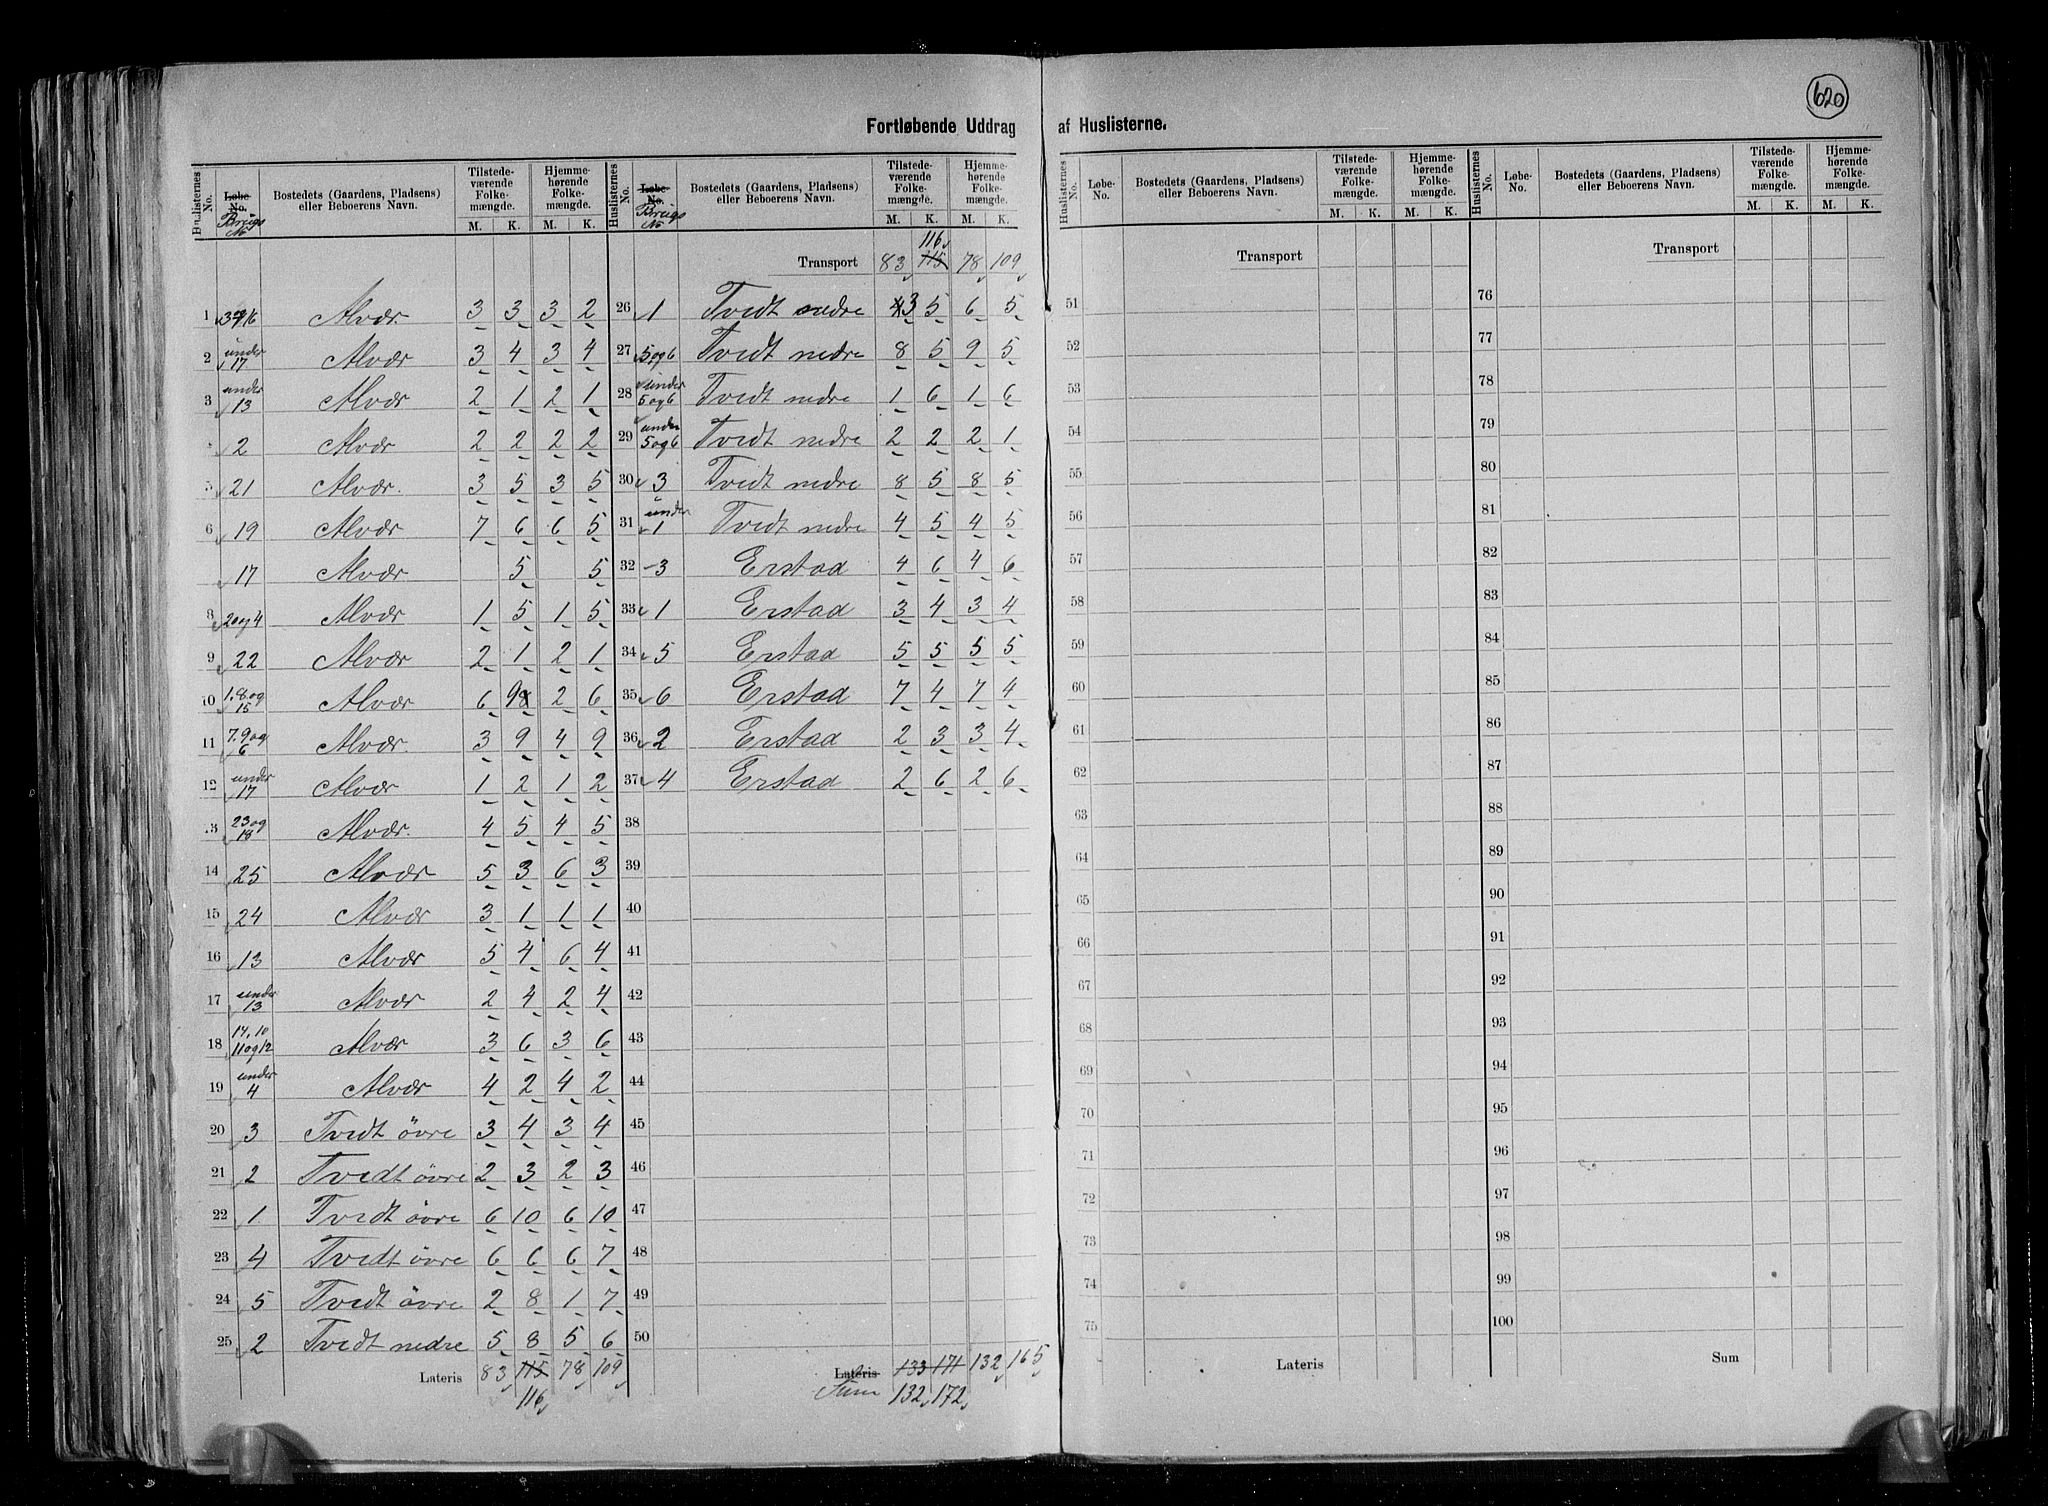 620
Fortløbende Uddrag af Huslisterne.
Huslisternes No. | Løbe-No. Brugs No | Bostedets (Gaardens, Pladsens) eller Beboerens Navn. | Tilstedeværende Folkemængde. M. K. | Hjemmehørende Folkemængde. M. K.
1 | Alvær. | 3 | 3 | 3 | 2
2 | under 17 | Alvær | 3 | 4 | 3 | 4
3 | under 13 | Alvær | 2 | 1 | 2 | 1
2 | Alvær | 2 | 2 | 2 | 2
5 | 21 | Alvær. | 3 | 5 | 3 | 5
6 | 19 | Alvær | 7 | 6 | 6 | 5
17 | Alvær | 5 | 5
8 | 2 og 4 | Alvær | 1 | 5 | 1 | 5
9 | 22 | Alvær | 2 | 1 | 2 | 1
10 | 1.8 og 15 | Alvær | 6 | 9 8 | 2 | 6
11 | 7.9 og 6 | Alvær. | 3 | 9 | 4 | 9
12 | under 17 | Alvær | 1 | 2 | 1 | 2
13 | 23 og 18 | Alvær. | 4 | 5 | 4 | 5
14 | 25 | Alvær | 5 | 3 | 6 | 3
15 | 24 | Alvær | 3 | 1 | 1 | 1
16 | 13 | Alvær | 5 | 4 | 6 | 4
17 | under 13 | Alvær | 2 | 4 | 2 | 4
18 | 14, 10 11 og 12 | Alvær | 3 | 6 | 3 | 6
19 | under 4 | Alvær | 4 | 2 | 4 | 2
20 | 3 | Tvedt övre | 3 | 4 | 3 | 4
21 | 2 | Tvedt övre | 2 | 3 | 2 | 3
22 | 1 | Tvedt övre | 6 | 10 | 6 | 10
23 | 4 | Tvedt övre | 6 | 6 | 6 | 7
24 | 5 | Tvedt övre | 2 | 8 | 1 | 7
25 | 2 | Tvedt nedre | 5 | 8 | 5 | 6
Lateris | 83 | 115 | 78 | 109
116
Huslisternes No. | Løbe-No. Brugs No | Bostedets (Gaardens, Pladsens) eller Beboerens Navn. | Tilstedeværende Folkemængde. M. K. | Hjemmehørende Folkemængde. M. K.
116
Transport | 83 | 115 | 78 | 109
26 | 1 | Tvedt nedre | 4 3 | 5 | 6 | 5
27 | 5 og 6 | Tvedt nedre | 8 | 5 | 9 | 5
28 | under 5 og 6 | Tvedt nedre | 1 | 6 | 1 | 6
29 | under 5 og 6 | Tvedt nedre | 2 | 2 | 2 | 1
30 | 3 | Tvedt nedre | 8 | 5 | 8 | 5
31 | under 1 | Tvedt nedre | 4 | 5 | 4 | 5
32 | 3 | Erstad | 4 | 6 | 4 | 6
33 | 1 | Erstad | 3 | 4 | 3 | 4
34 | 5 | Erstad | 5 | 5 | 5 | 5
35 | 6 | Erstad | 7 | 4 | 7 | 4
36 | 2 | Erstad | 2 | 3 | 3 | 4
37 | 4 | Erstad | 2 | 6 | 2 | 6
38
39
40
41
42
43
44
45
46
47
48
49
50
Lateris | 133 | 171 | 132 | 165
Sum | 132 | 172
Huslisternes No. | Løbe-No. | Bostedets (Gaardens, Pladsens) eller Beboerens Navn. | Tilstedeværende Folkemængde. M. K. | Hjemmehørende Folkemængde. M. K.
Transport
51
52
53
54
55
56
57
58
59
60
61
62
63
64
65
66
67
68
69
70
71
72
73
74
75
Lateris
Huslisternes No. | Løbe-No. | Bostedets (Gaardens, Pladsens) eller Beboerens Navn. | Tilstedeværende Folkemængde. M. K. | Hjemmehørende Folkemængde. M. K.
Transport
76
77
78
79
80
81
82
83
84
85
86
87
88
89
90
91
92
93
94
95
96
97
98
99
100
Sum